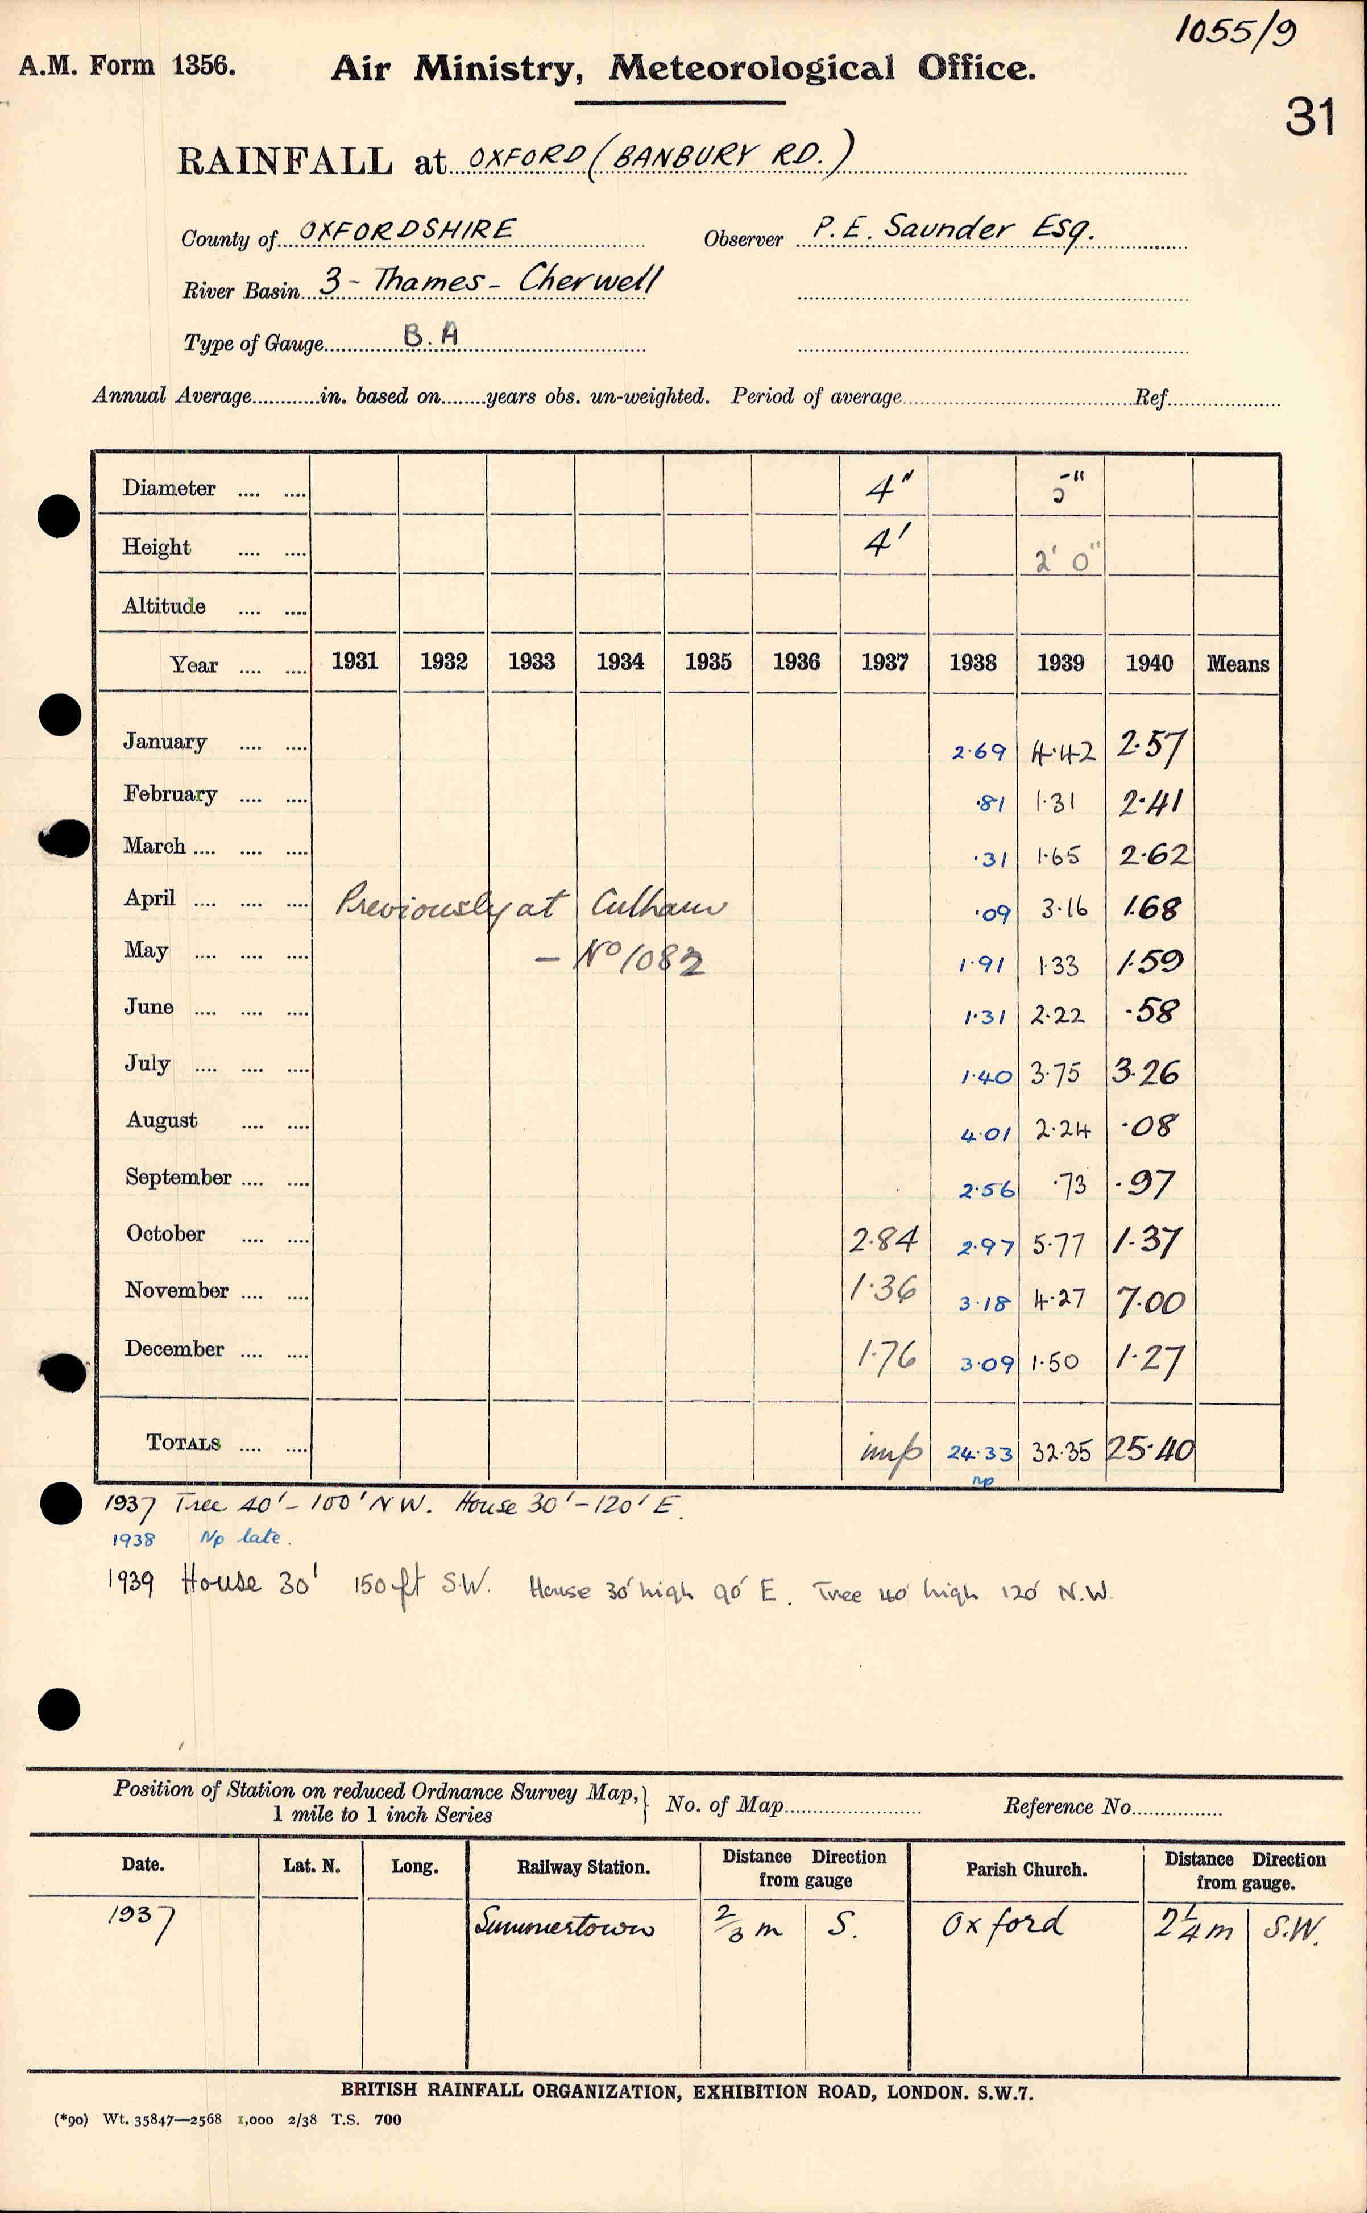 1055/9
A.M. Form 1356. Air Ministry, Meteorological Office.
31
RAINFALL at OXFORD (BANBURY RD.)
County of OXFORDSHIRE Observer P.E. Saunder Esq.
River Basin 3 - Thames - Cherwell
Type of Gauge B.A
Annual Average in. based on years obs. un-weighted. Period of average Ref.
Diameter .... .... 4" 5"
Height .... .... 4' 2' 0"
Altitude .... ....
Year .... .... 1931 1932 1933 1934 1935 1936 1937 1938 1939 1940 Means
January .... .... 2.69 4.42 2.57
February .... .... .81 1.31 2.41
March .... .... .... .31 1.65 2.62
April .... .... .... Previously at Culham .09 3.16 1.68
May .... .... .... — No 1082 1.91 1.33 1.59
June .... .... .... 1.31 2.22 .58
July .... .... .... 1.40 3.75 3.26
August .... .... 4.01 2.24 .08
September .... .... 2.56 .73 .97
October .... .... 2.84 2.97 5.77 1.37
November .... .... 1.36 3.18 4.27 7.00
December .... .... 1.76 3.09 1.50 1.27
TOTALS .... .... imp 24.33 32.35 25.40
np
1937 Tree 40' - 100' NW. House 30' - 120' E.
1938 Np late.
1939 House 30' 150 ft S.W. House 30' high 90' E. Tree 40' high 120' N.W.
Position of Station on reduced Ordnance Survey Map, 1 mile to 1 inch Series } No. of Map Reference No.
Date. Lat. N. Long. Railway Station. Distance Direction from gauge Parish Church. Distance Direction from gauge.
1937 Summertown 2/3 m S. Oxford 2 1/4 m S.W.
BRITISH RAINFALL ORGANIZATION, EXHIBITION ROAD, LONDON. S.W.7.
(*90) Wt. 35847—2568 1,000 2/38 T.S. 700